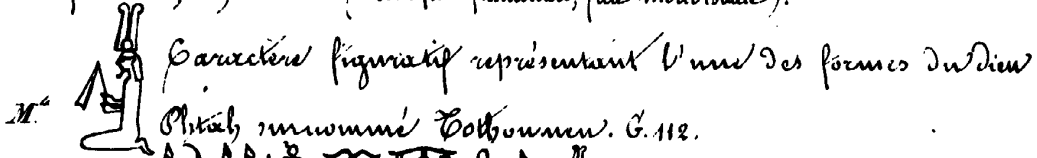 Caractère figuratif représentant l'une des formes du dieu
M.ᵃ Phtah surnommé Tothounen. G. 112.